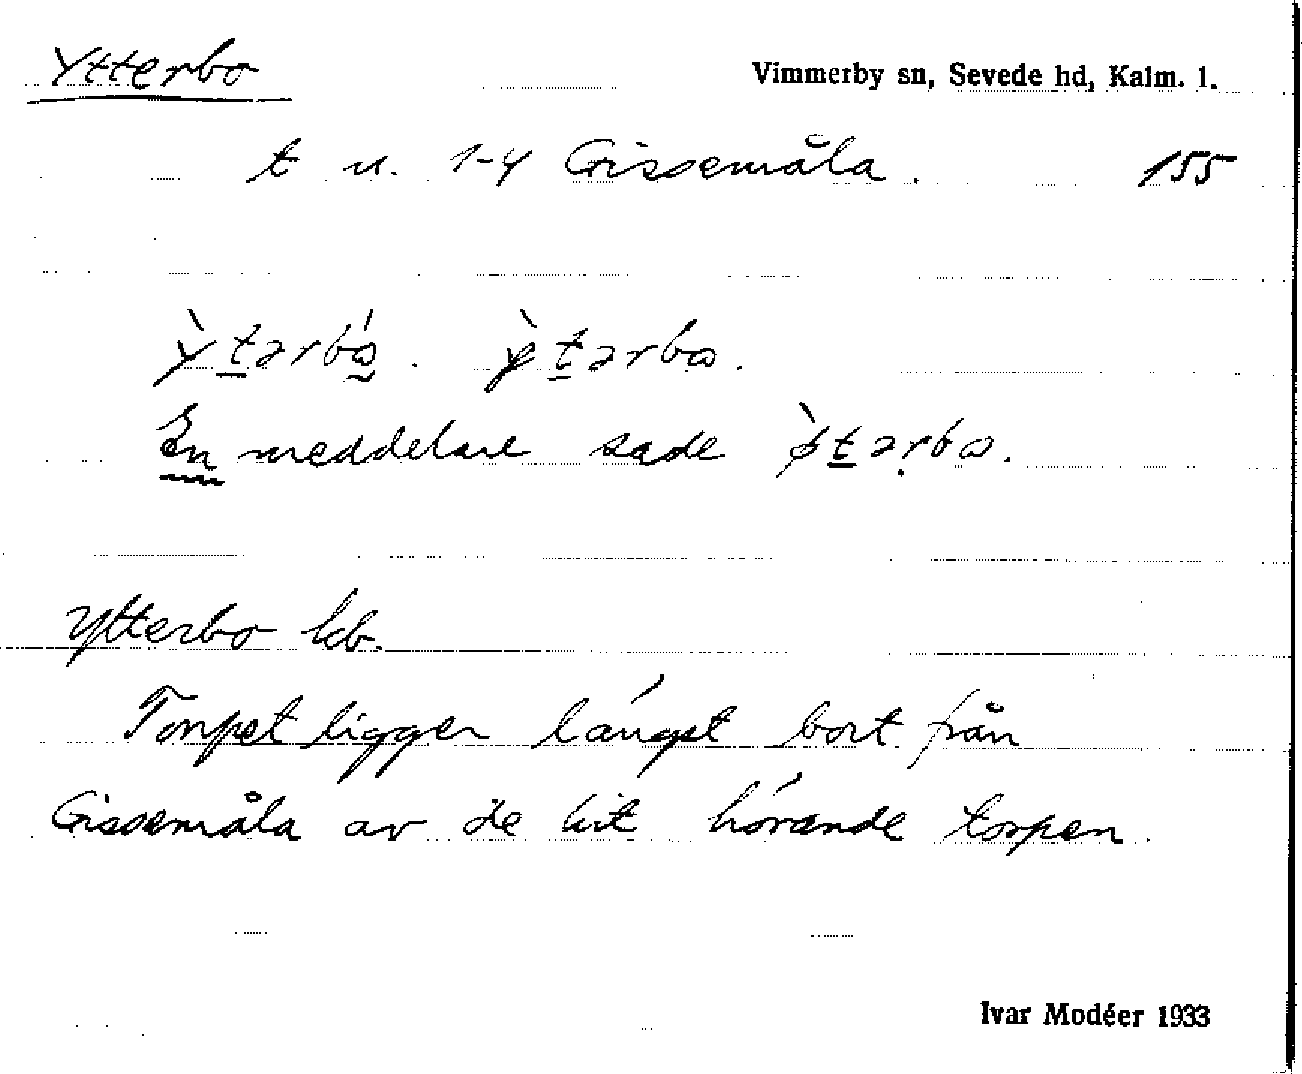 Ytterbo
Vimmerby sn, Sevede hd, Kalm. l.
t u. 1-4 Gissemåla. 155
ỳtərbó. ỳtərbo.
En meddelare sade ø̀tərbo.
Ytterbo kb.
Torpet ligger längst bort från
Gissemåla av de hit hörande torpen.
Ivar Modéer 1933